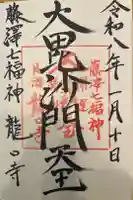 令和八年一月十日
大毘沙門天
藤澤七福神 龍口寺
藤沢七福神